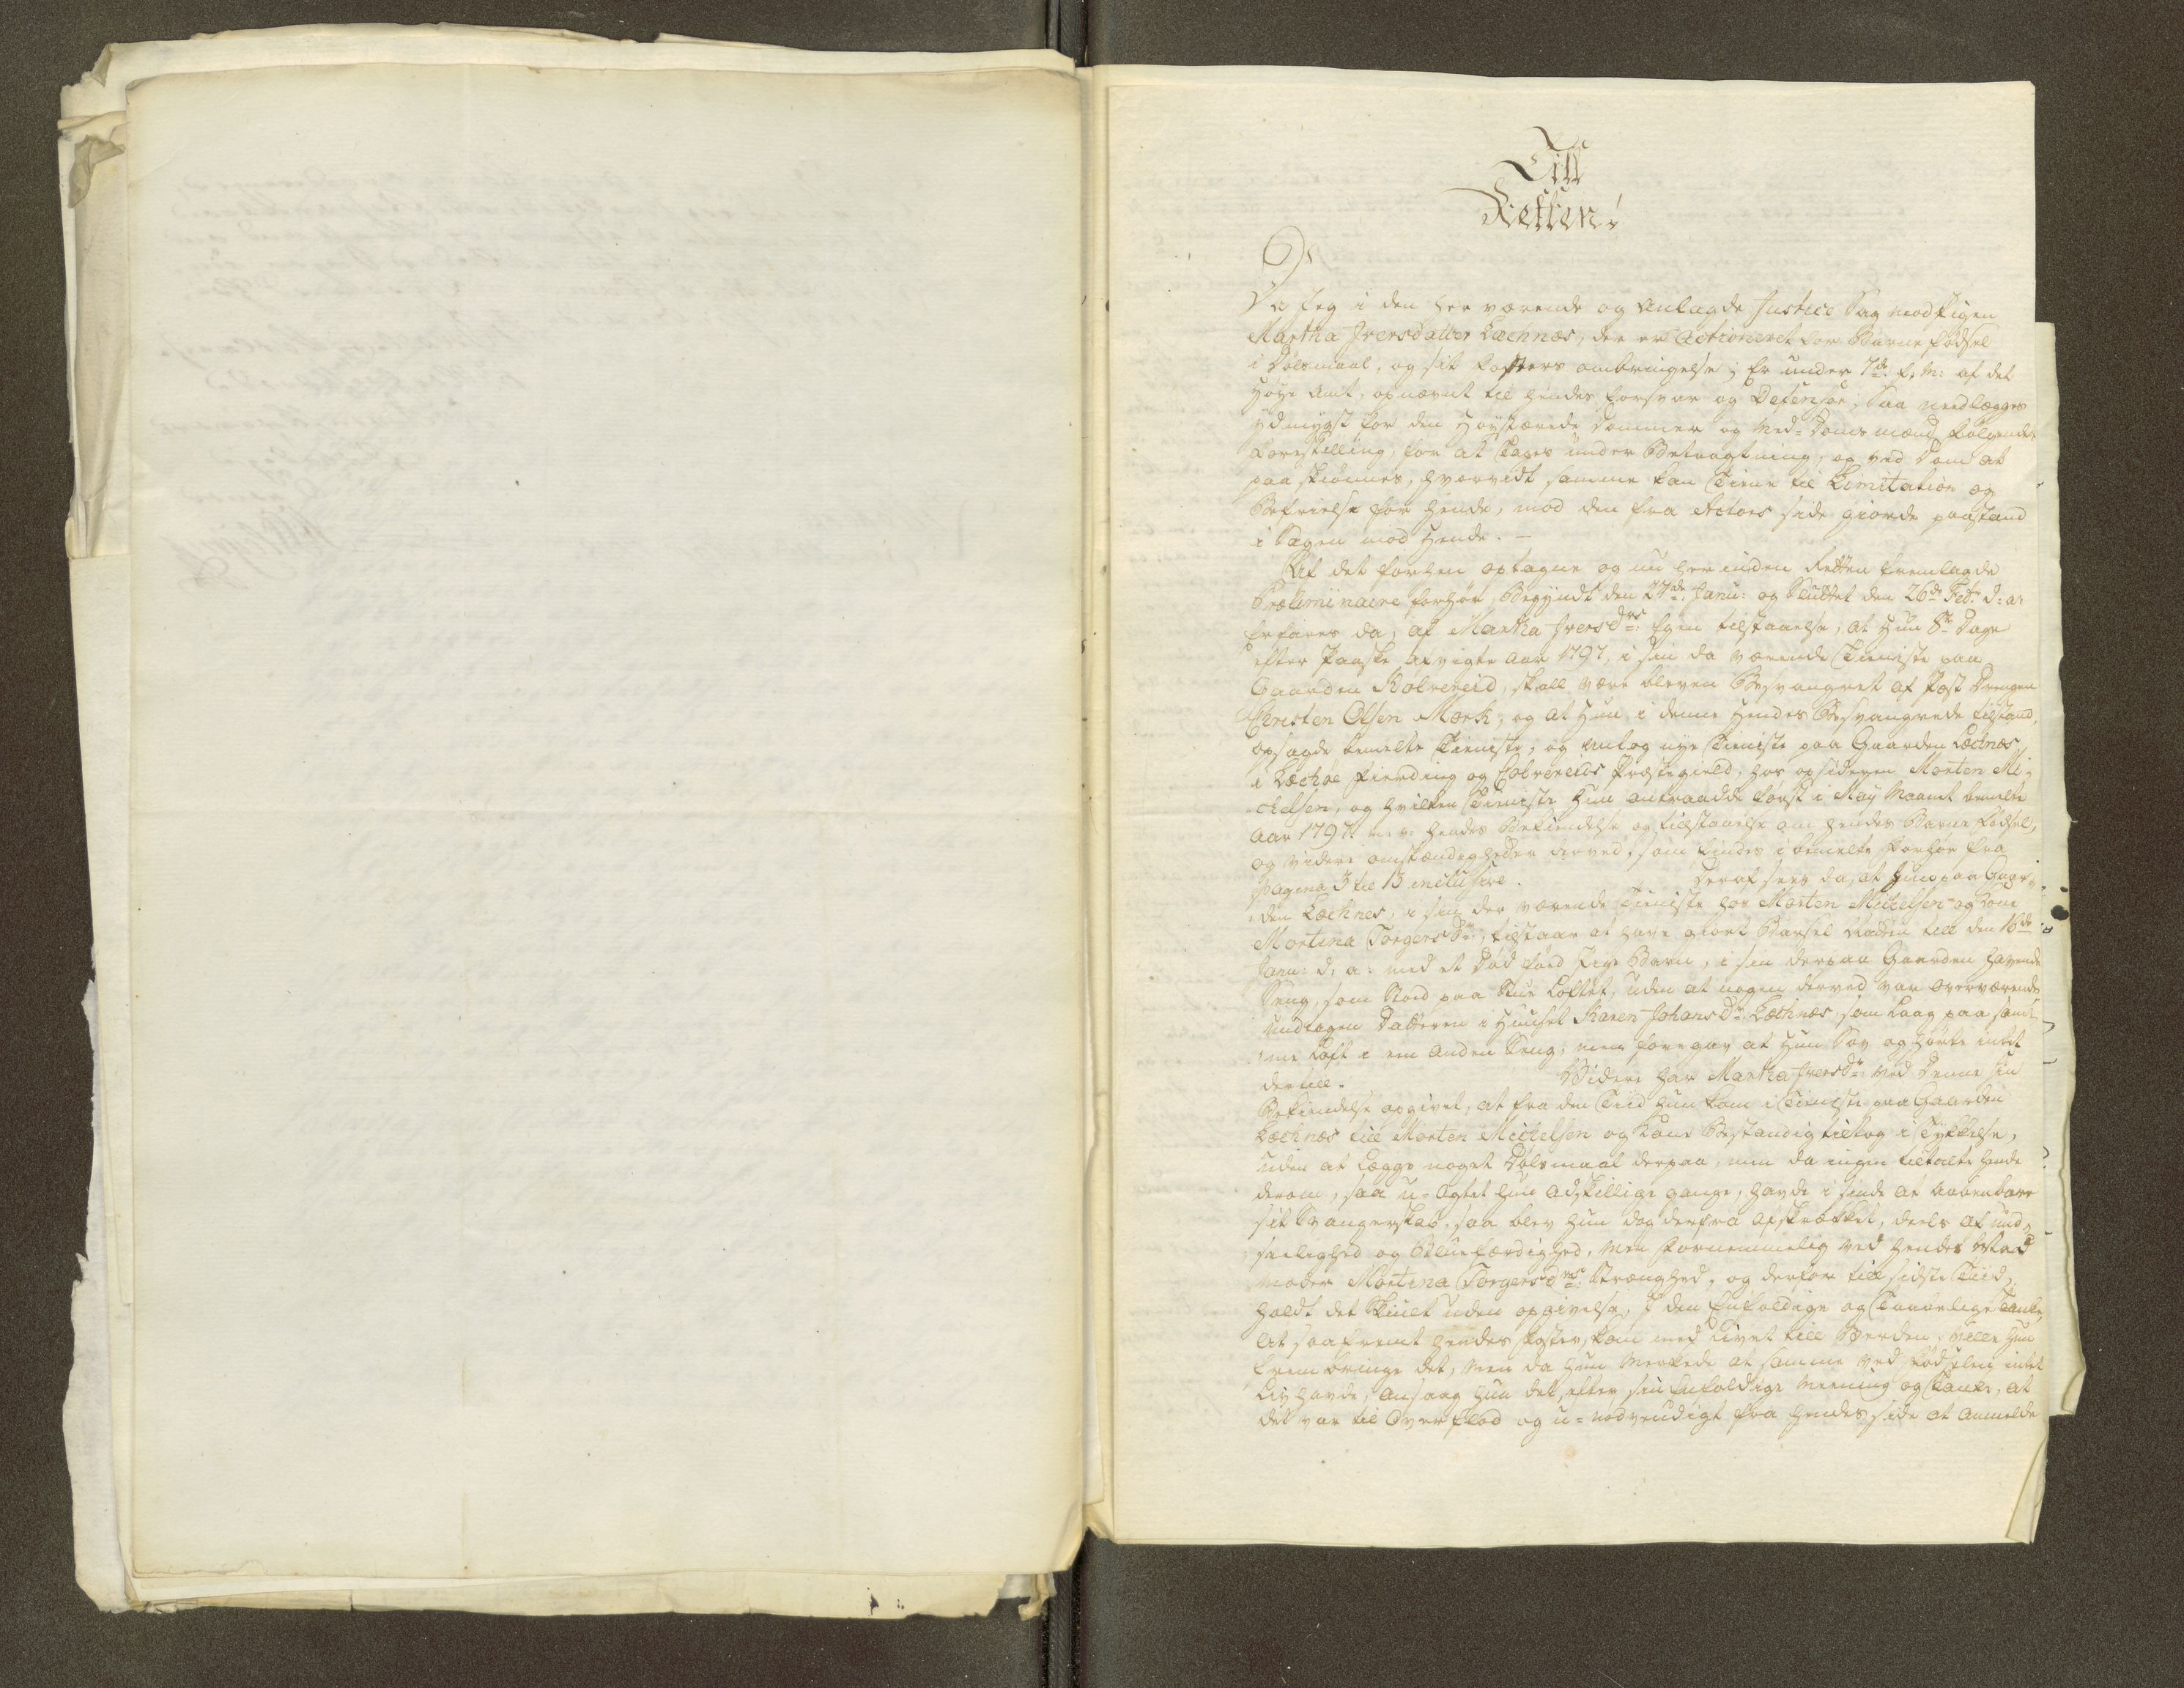 Till
Retten!
Da Jeg i den her værende og Anlagde Justice Sag mod Pigen
Martha Iversdatter Læchnæs, der er Actioneret for Barnefødsel
i Dølsmaal, og sit Fosters ombringelse; Er under 7de f. M: af det
Høye Amt, opnævnt til hendes forsvar og Defensor; Saa nedlægges
ydmygst for den Høystærede Dommer og Med-Doms mænd følgende
Forestilling, for at Tages under Betragtning, og ved Dom at
paaskiønnes, hvorvidt samme kan Tiene til Limitation og
Befrielse for hende, mod den fra Actors side giorde paastand
i Sagen mod Hende. —
Af det forhen optagne og nu her inden Retten fremlagde
Præliminaire forhør, Begyndt den 27de Janu: og Sluttet den 26de Feb: d: a:
Erfares da, af Martha Iversdrs Egen tilstaaelse, at Hun 8te Dage
efter Paaske afvigte Aar 1797, i sin da værende Tieniste paa
Gaarden Kolvereid, skall være bleven Besvangret af Post Drengen
Christen Olsen Mærk, og at Hun, i denne hendes Besvangrede tilstand,
opsagde bemelte Tieniste, og Antog nye Tieniste paa Gaarden Læchnæs
i Læchøe Fierding og Colvereids Præstegield, hos opsideren Morten Mi-
chelsen, og hvilken Tieniste Hun antraadde først i May Maanet bemelte
Aar 1797. hendes Bekiendelse og tilstaaelse om hendes Barnefødsel,
og videre omstændigheder derved, som findes i bemelte Forhør fra
pagina 3 til 13 inclusive. Deraf sees da, at Hun paa Gaar-
den Læchnes, i sin der værende Tieniste hos Morten Michelsen og Kone
Martina Torgersdr, tilstaar at have giort Barsel Natten till den 16de
Janu: d: a: med et Død født Pige Barn, i sin derpaa Gaarden havende
Seng, som Stod paa Stue Loftet, uden at nogen derved var overværende
undtagen Datteren i Huuset Karen Johansdr Læchnæs, som Laag paa sam-
me Loft i en anden Seng, men foregav at Hun Sov og hørte intet
dertill. Videre har Martha Iversdr ved Denne sin
Bekiendelse opgivet, at fra den Tiid hun kom i Tieniste paa Gaarden
Læchnæs till Morten Michelsen og Kone Bestandig tiltog i Tykkelse,
uden at Lægge noget Dølsmaal derpaa, men da ingen tiltalte hende
derom, saa u-Agtet hun adskillige gange, havde i sinde at aabenbare
sit Svangerskab, saa blev hun dog derfra afskrækket, deels af und-
seelighed og Bluefærdighed, men fornemmelig ved hendes Mad
moder Martina Torgersdrs Strænghed, og derfor till sidste Tiid,
holdt det Skiult uden opgivelse, I den Enfoldige og Taabelige Tanke,
At saafremt hendes Foster, kom med Livet till Verden, ville Hun
frembringe det, men da hun Merkede at samme ved fødselen intet
Liv havde, Ansaag hun det, efter sin Enfoldige Meening og Tanke, at
det var til Overflod og u-nødvendigt fra hendes side at Anmelde